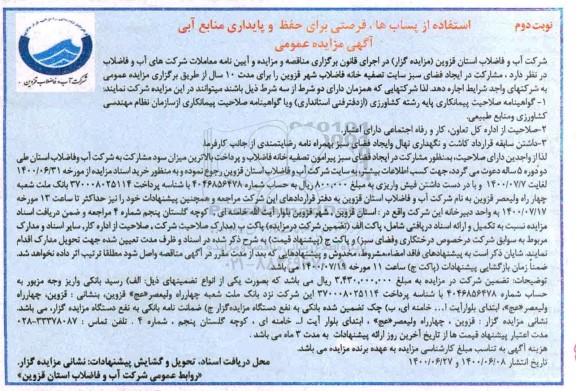 نوبت دوم
استفاده از پساب ها، فرصتی برای حفظ و پایداری منابع آبی
آگهی مزایده عمومی
شرکت آب و فاضلاب استان قزوین (مزایده گزار) در اجرای قانون برگزاری مناقصه و مزایده و آیین نامه معاملات شرکت های آب و فاضلاب
در نظر دارد، مشارکت در ایجاد فضای سبز سایت تصفیه خانه فاضلاب شهر قزوین را برای مدت ۱۰ سال از طریق برگزاری مزایده عمومی
به شرکتهای واجد شرایط اجاره دهد. لذا شرکتهایی که همزمان دارای دو شرط از سه شرط ذیل باشند میتوانند در این مزایده شرکت نمایند:
۱- گواهینامه صلاحیت پیمانکاری پایه رشته کشاورزی (ازدفترفنی استانداری) ویا گواهینامه صلاحیت پیمانکاری ازسازمان نظام مهندسی
کشاورزی ومنابع طبیعی.
۲-صلاحیت از اداره کل تعاون، کار و رفاه اجتماعی دارای اعتبار.
۳-داشتن سابقه قرارداد کاشت و نگهداری نهال وایجاد فضای سبز بهمراه نامه رضایتمندی از جانب کارفرما.
لذا از واجدین دارای صلاحیت، بمنظور مشارکت در ایجاد فضای سبز پیرامون تصفیه خانه فاضلاب و پرداخت بالاترین میزان سود مشارکت به شرکت آب وفاضلاب استان طی
دو دوره ۵ ساله دعوت می گردد، جهت کسب اطلاعات بیشتر به سایت شرکت آب و فاضلاب استان قزوین رجوع نموده و به منظور خرید اسناد مزایده از مورخه ۱۴۰۰/۰۶/۳۱
لغایت ۱۴۰۰/۰۷/۷ و با در دست داشتن فیش واریزی به مبلغ ۸۰۰,۰۰۰ ریال به حساب شماره ۴۰۴۶۸۵۶۴۷۸ با شناسه پرداخت ۳۷۰۰۰۸۰۲۵۱۱۴ بانک ملت شعبه
چهار راه ولیعصر قزوین به نام شرکت آب و فاضلاب استان قزوین به دفتر قراردادهای این شرکت مراجعه و همچنین پیشنهادات خود را نیز حداکثر تا ساعت ۱۳ مورخه
۱۴۰۰/۰۷/۱۷ به واحد دبیرخانه این شرکت واقع در : استان قزوین، شهر قزوین بلوار آیت الله خامنه ای، کوچه گلستان پنجم شماره ۴ مراجعه و ضمن دریافت اسناد
مزایده نسبت به تکمیل و ارائه اسناد دریافتی شامل، پاکت الف (تضمین شرکت درمزایده) پاکت ب (مدارک صلاحیت شرکت، صلاحیت از اداره کار، سایر اسناد و مدارک
مربوط به سوابق شرکت درخصوص درختکاری وفضای سبز) و پاکت ج (پیشنهاد قیمت) به شرح ذکر شده در اسناد و ظرف مدت تعیین شده جهت تحویل مدارک اقدام
نمایند. شایان ذکر است به پیشنهادهای فاقد امضاء،مشروط، مخدوش و پیشنهادهایی که بعد از مدت مقرر در آگهی مناقصه واصل شود مطلقا ترتیب اثر داده نخواهد شد.
ضمناً زمان بازگشایی پیشنهادات (پاکت ج) ساعت ۱۱ مورخه ۱۴۰۰/۰۷/۱۹ می باشد.
توضیحات: تضمین شرکت در مزایده به مبلغ ۳,۴۳۰,۰۰۰,۰۰۰ ریال می باشد که بصورت یکی از انواع تضمینهای ذیل: الف) رسید بانکی واریز وجه مزبور به
حساب شماره ۴۰۴۶۸۵۶۴۷۸ با شناسه پرداخت ۳۷۰۰۰۸۰۲۵۱۱۴ این شرکت نزد بانک ملت شعبه چهارراه ولیعصر«عج» قزوین، بنشانی : قزوین، چهارراه
ولیعصر«عج»، ابتدای بلوارآیت ا... خامنه ای، ب) چک تضمین شده بانکی به نفع دستگاه مزایده‌گزار ج) ضمانت نامه بانکی به نفع دستگاه مزایده گزار، می باشد.
نشانی مزایده گزار : قزوین ، چهارراه ولیعصر«عج» ، ابتدای بلوار آیت ا... خامنه ای ، کوچه گلستان پنجم ، شماره ۴ . تلفن تماس : ۳۳۳۷۸۰۸۷-۰۲۸
مدت اعتبار پیشنهاد قیمت ها از تاریخ آخرین روز ارائه پیشنهادات به مدت ۳ ماه می باشد .
هزینه آگهی به تناسب مبلغ کارشناسی مزایده به عهده برنده مزایده می باشد.
تاریخ انتشار ۱۴۰۰/۰۶/۰۸ و ۱۴۰۰/۰۶/۲۷
محل دریافت اسناد، تحویل و گشایش پیشنهادات: نشانی مزایده گزار.
«روابط عمومی شرکت آب و فاضلاب استان قزوین»
شرکت آب و فاضلاب قزوین